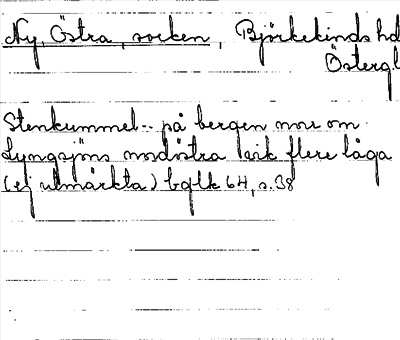 Ny, Östra, socken, Björkekinds hd
Östergl
Stenkummel - på bergen norr om
Lyngsjöns nordöstra vik flere låga
(ej utmärkta) bglk 64, s. 38